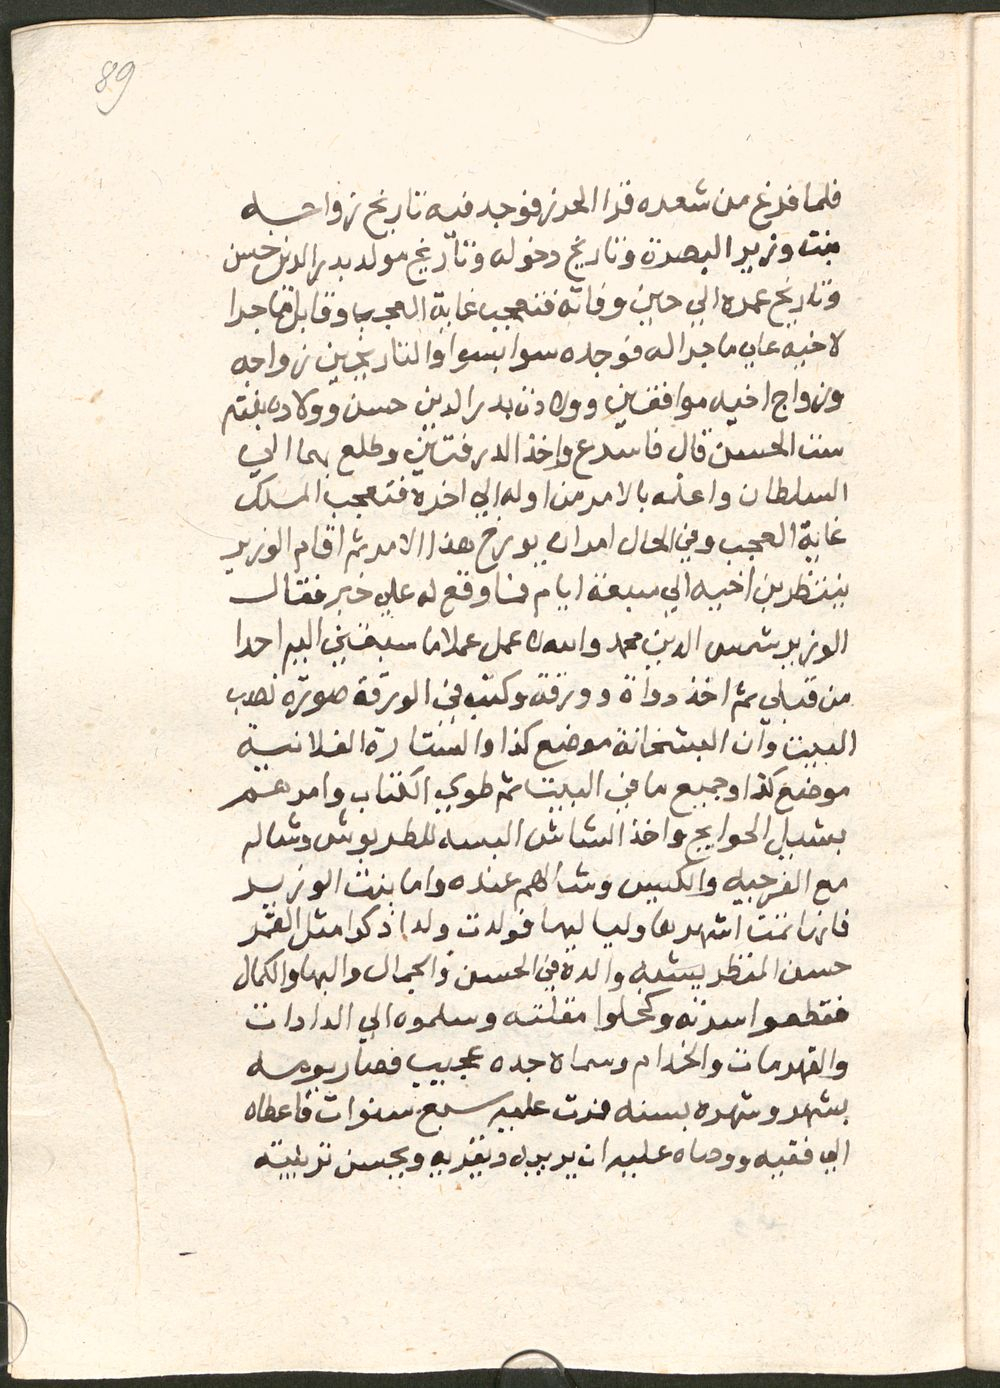 89
فلما فرغ من شعره قرا الحرز فوجد فيه تاريخ زواجه
بنت وزير البصرة وتاريخ دخوله وتاريخ مولد بدر الدين حسن
وتاريخ عمره الي حين وفاته فتعجب غاية العجب وقابل ما جرا
لاخيه علي ما جرا له فوجده سوا بسوا والتاريخين زواجه
وزواج اخيه موافقين وولادت بدر الدين حسن وولاده بنته
ست الحسن قال فاسرع واخذ الورقتين وطلع بهما الي
السلطان واعلمه بالامر من اوله الي اخره فتعجب الملك
غاية العجب وفي الحال امر ان يورخ هذا الامر ثم اقام الوزير
ينتظر بن اخيه الي سبعة ايام فما وقع له علي خبر فقال
الوزير شمس الدين محمد والله لا عمل عملا ما سبقني اليه احدا
من قبلي ثم اخذ دواة وورقة وكتب في الورقة صورة نصب
البيت وان البشخانة موضع كذا والستارة الفلانية
موضع كذا وجميع ما في البيت ثم طوي الكتاب وامرهم
بشيل الحوايج واخذ الشاش البسه للطربوش وشاله
مع الفرجيه والكيس وشالهم عنده واما بنت الوزير
فانها تمت اشهرها ولياليها فولدت ولدا ذكرا مثل القمر
حسن المنظر يشبه والده في الحسن والجمال والبها والكمال
فقطعوا سرته وكحلوا مقلته وسلموه الي الدادات
والقهرمات والخدام وسماه جده عجيب فصار يومه
بشهر وشهره بسنه فمرت عليه سبع سنوات فاعطاه
الي فقيه ووصاه عليه ان يربيه ويقريه ويحسن تربيته